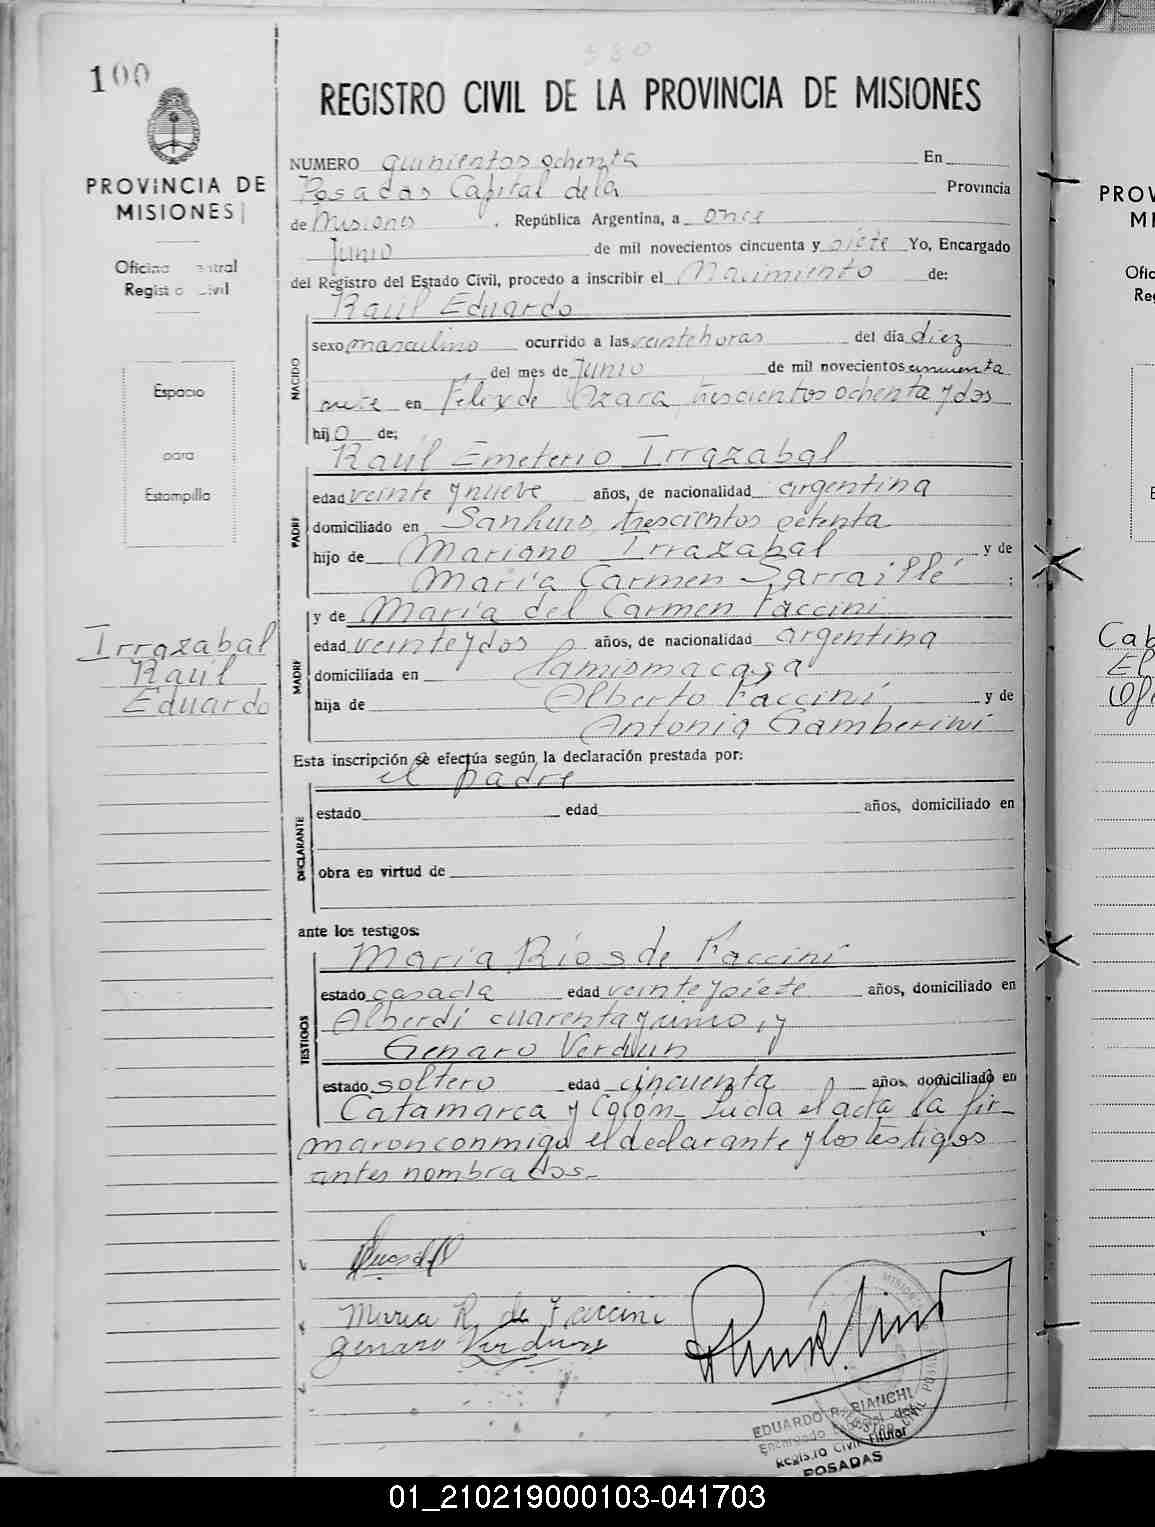 100
580
PROVINCIA DE
MISIONES
Oficina Central
Registro Civil
Espacio
para
Estampilla
Irrazabal
Raúl
Eduardo
REGISTRO CIVIL DE LA PROVINCIA DE MISIONES
NUMERO quinientos ochenta En
Posadas Capital de la Provincia
de Misiones, República Argentina, a once
Junio de mil novecientos cincuenta y siete Yo, Encargado
del Registro del Estado Civil, procedo a inscribir el Nacimiento de:
Raúl Eduardo
NACIDO
sexo masculino ocurrido a las veinte horas del día diez
del mes de Junio de mil novecientos cincuenta
siete en Félix de Azara trescientos ochenta y dos
hijo de:
Raúl Emeterio Irrazabal
PADRE
edad veinte y nueve años, de nacionalidad argentina
domiciliado en San Luis trescientos setenta
hijo de Mariano Irrazabal y de
María Carmen Sarraillé
y de María del Carmen Faccini
MADRE
edad veinte y dos años, de nacionalidad argentina
domiciliada en la misma casa
hija de Alberto Faccini y de
Antonia Gamberini
Esta inscripción se efectúa según la declaración prestada por:
el padre
DECLARANTE
estado edad años, domiciliado en
obra en virtud de
ante los testigos:
María Ríos de Faccini
TESTIGOS
estado casada edad veinte y siete años, domiciliado en
Alberdi cuarenta y cinco, y
Genaro Verdun
estado soltero edad cincuenta años, domiciliado en
Catamarca y Colón- Leida el acta la fir-
maron conmigo el declarante y los testigos
antes nombrados.-
Maria R. de Faccini
Genaro Verdun
EDUARDO R. BIANCHI
Encargado
Registro Civil Titular
POSADAS
PROV
MI
Ofic
Reg
E
Cab
El
01_210219000103-041703